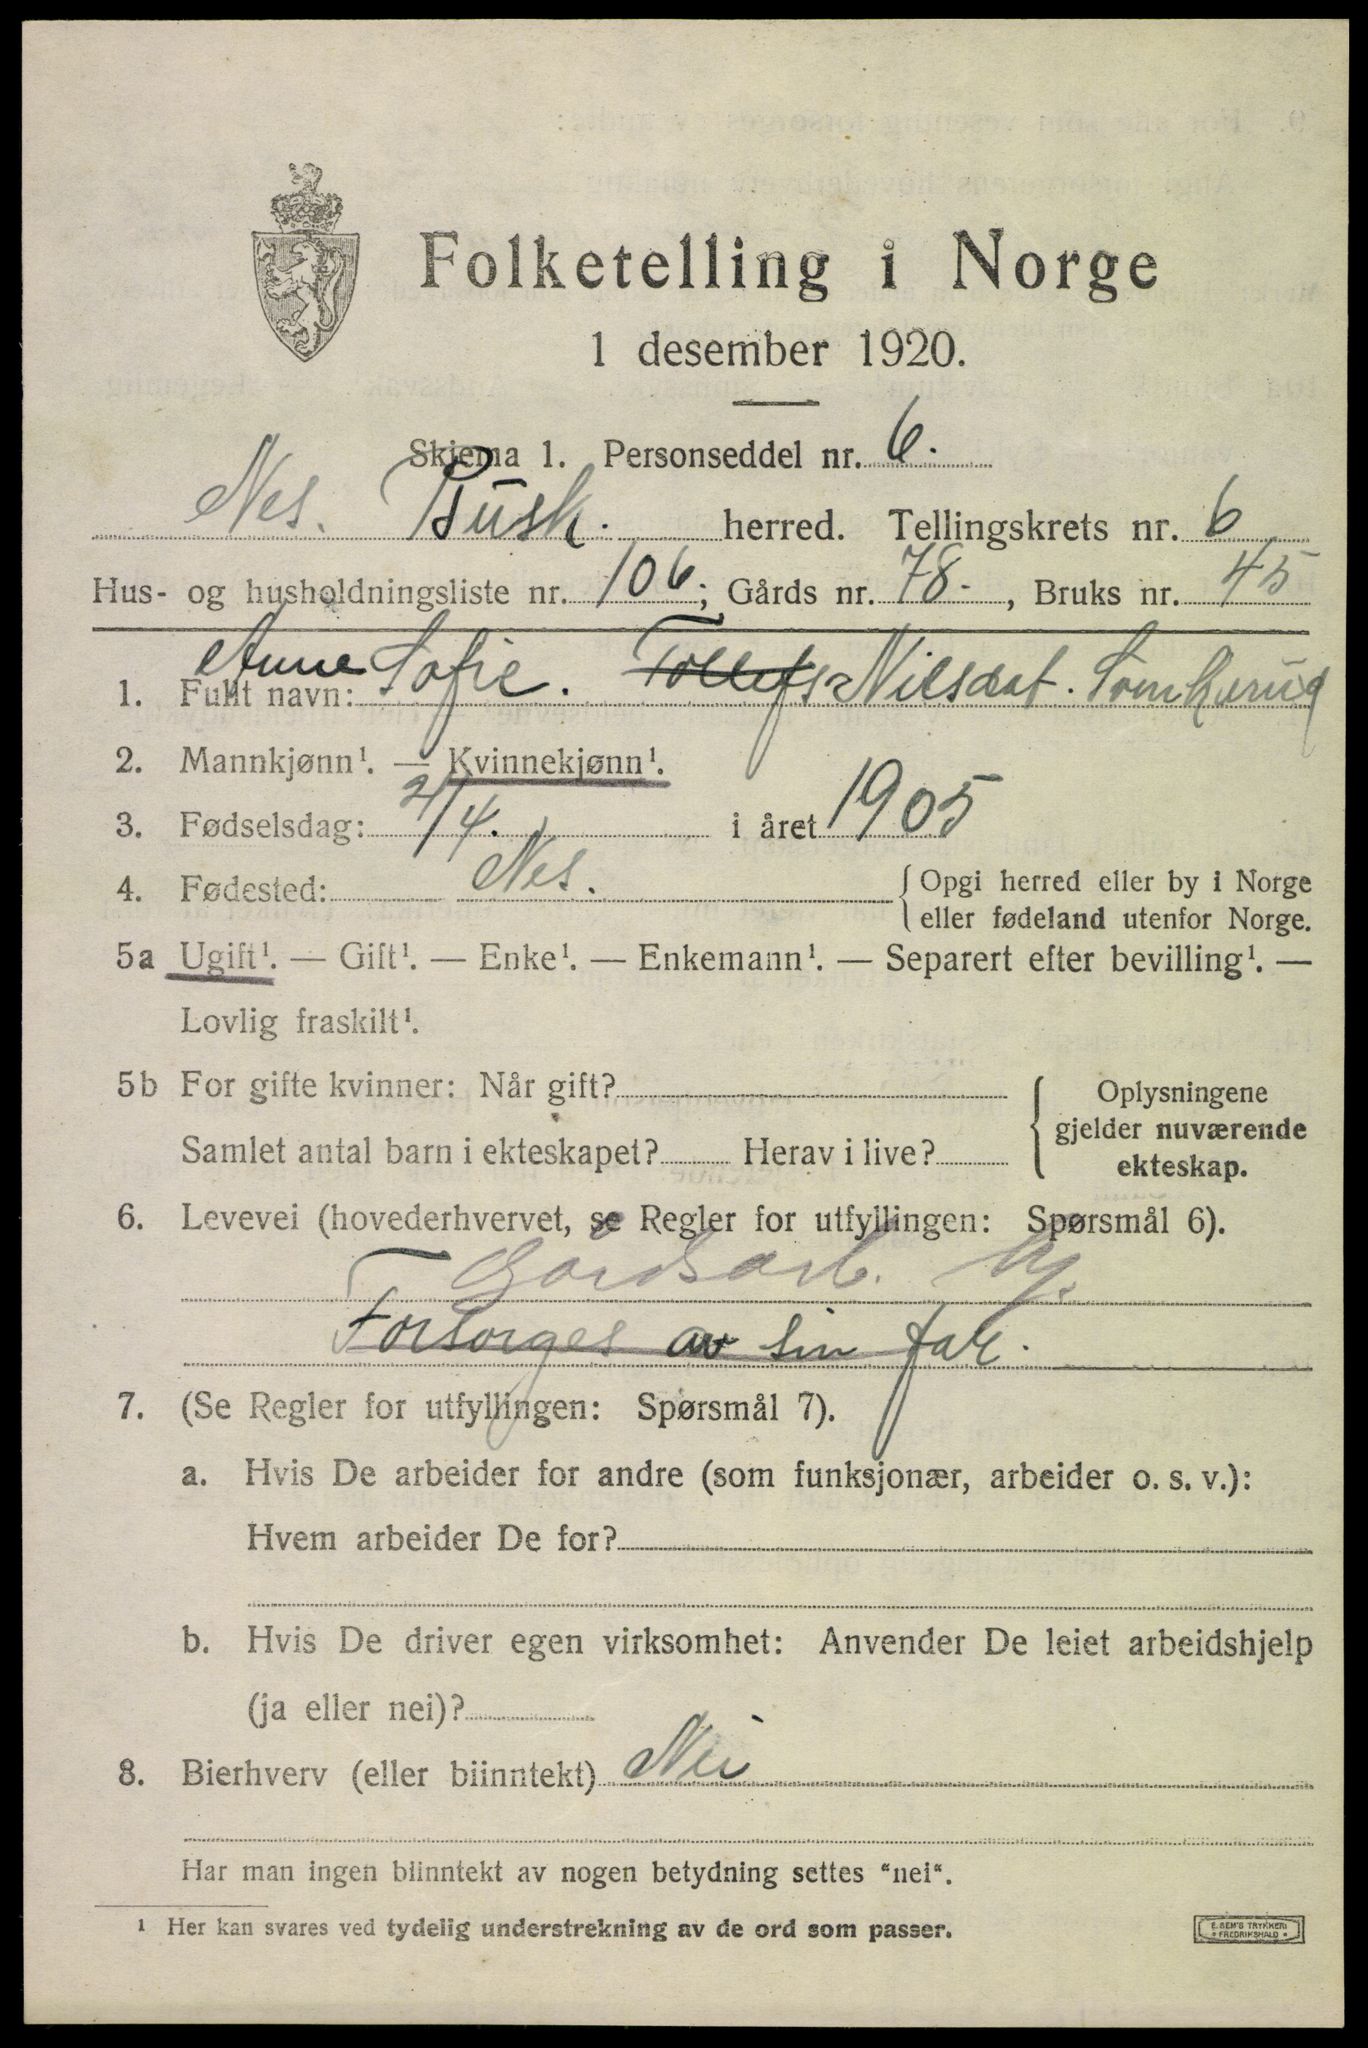 Folketelling i Norge
1 desember 1920.
Skjema 1. Personseddel nr. 6.
Nes. Busk. herred. Tellingskrets nr. 6
Hus- og husholdningsliste nr. 106; Gårds nr. 78-, Bruks nr. 45
1. Fullt navn: Anne Sofie. Tollefs Nilsdat.
2. Mannkjønn¹. — Kvinnekjønn¹.
3. Fødselsdag: 2/4. i året 1905
4. Fødested: Nes. { Opgi herred eller by i Norge
eller fødeland utenfor Norge.
5a Ugift¹. — Gift¹. — Enke¹. — Enkemann¹. — Separert efter bevilling¹. —
Lovlig fraskilt¹.
5b For gifte kvinner: Når gift?
Samlet antal barn i ekteskapet? Herav i live?
{ Oplysningene
gjelder nuværende
ekteskap.
6. Levevei (hovederhvervet, se Regler for utfyllingen: Spørsmål 6).
Gårdsarb.
Forsørges av sin far.
7. (Se Regler for utfyllingen: Spørsmål 7).
a. Hvis De arbeider for andre (som funksjonær, arbeider o. s. v.):
Hvem arbeider De for?
b. Hvis De driver egen virksomhet: Anvender De leiet arbeidshjelp
(ja eller nei)?
8. Bierhverv (eller biinntekt) Nei
Har man ingen biinntekt av nogen betydning settes "nei".
¹ Her kan svares ved tydelig understrekning av de ord som passer.
E. SEM'S TRYKKERI
* FREDRIKSHALD *